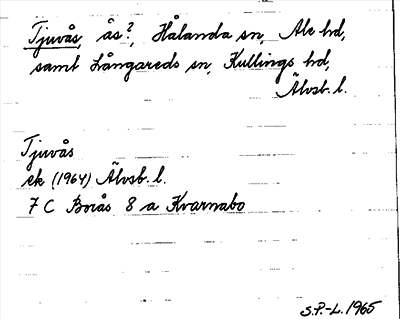 Tjuvås, ås?, Hålanda sn, Ale hd,
samt Långareds sn, Kullings hd,
Älvsb. l.
Tjuvås
ek (1964) Älvsb. l.
7 C Borås 8 a Kvarnabo
S.P.-L. 1965